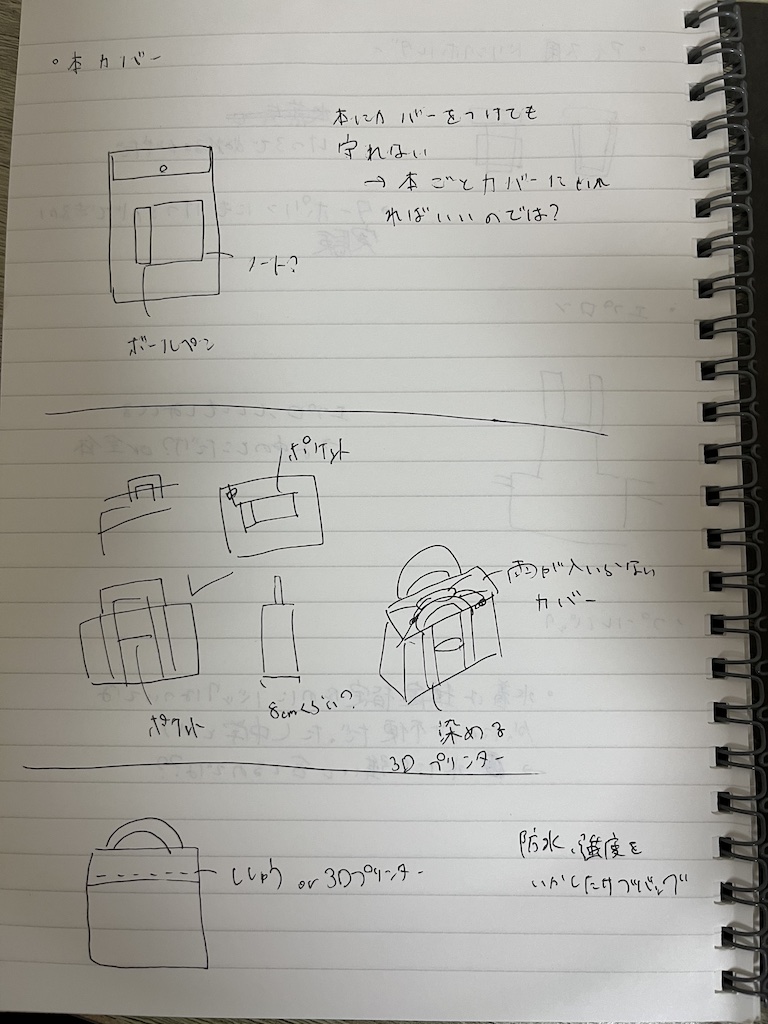 ・本カバー
本にカバーをつけても
守れない
→ 本ごとカバーに入れ
ればいいのでは?
ノート?
ボールペン
ポケット
雨が入いらない
カバー
ポケット
8cmくらい?
染める
3Dプリンター
ししゅう or 3Dプリンター
防水、強度を
いかしたサブバッグ